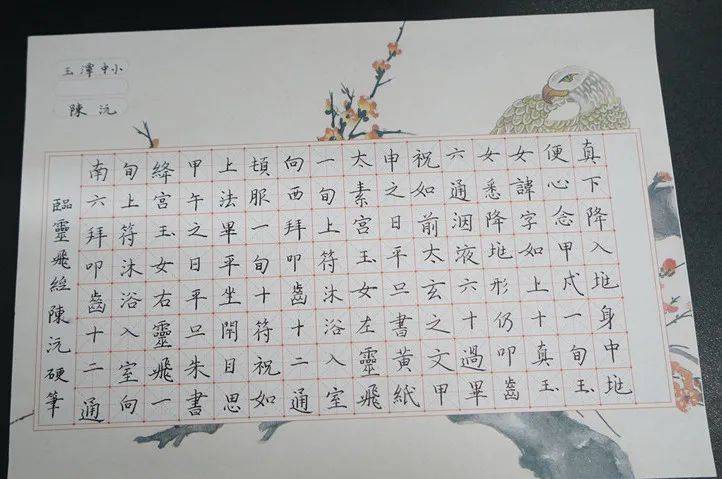 玉澤中小
陳沅
真下降入兆身中兆
便心念甲戌一旬玉
女諱字如上十真玉
女悉降兆形仍叩齒
六通咽液六十過畢
祝如前太玄之文甲
申之日平旦書黃紙
太素宮玉女左靈飛
一旬上符沐浴入室
向西拜叩齒十二通
頓服一旬十符祝如
上法畢平坐閉目思
甲午之日平旦朱書
絳宮玉女右靈飛一
旬上符沐浴入室向
南六拜叩齒十二通
臨靈飛經陳沅硬筆